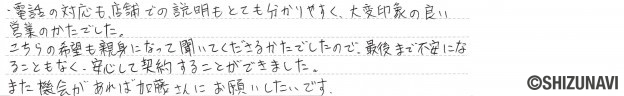 ・電話の対応も、店舗での説明もとても分かりやすく、大変印象の良い
営業のかたでした。
こちらの希望も親身になって聞いてくださるかたでしたので、最後まで不安にな
ることもなく、安心して契約することができました。
また機会があれば加藤さんにお願いしたいです。
©SHIZUNAVI